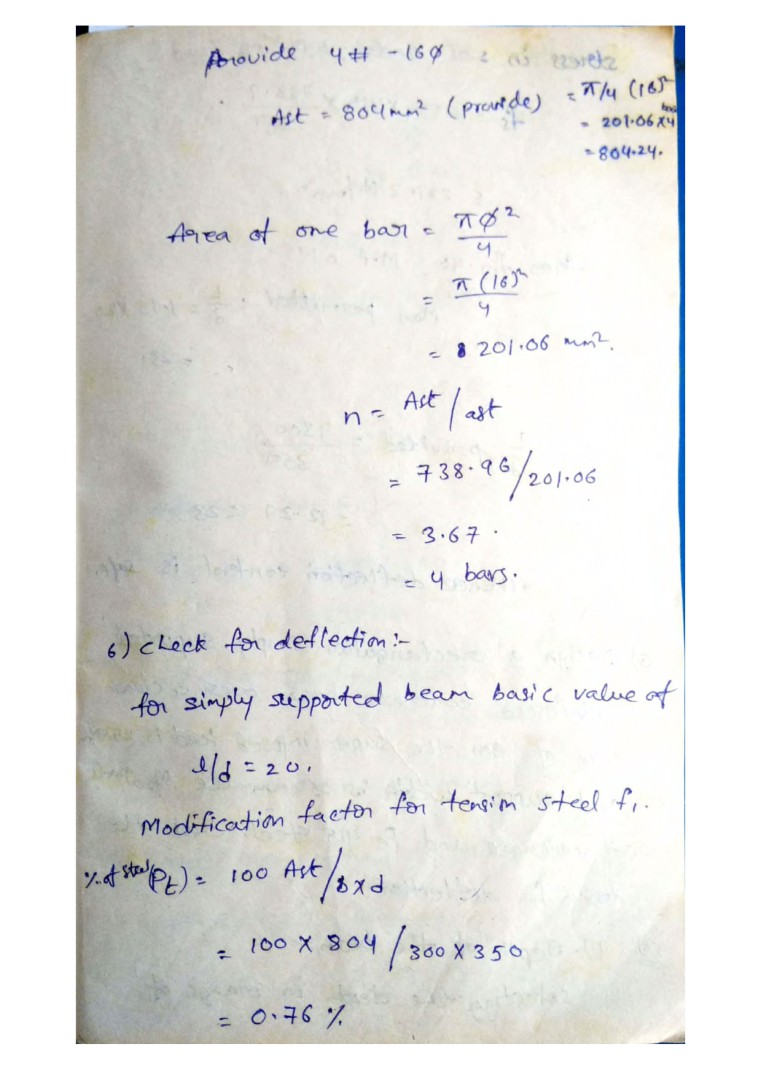 Provide 4# - 16φ
Ast = 804mm² (provide)
= π/4 (16)²
= 201.06 x4
= 804.24.
Area of one bar = πφ²/4
= π(16)²/4
= 201.06 mm².
n = Ast/ast
= 738.96/201.06
= 3.67.
= 4 bars.
6) check for deflection:-
for simply supported beam basic value of
l/d = 20.
Modification factor for tension steel f₁.
% of steel (Pt) = 100 Ast/b x d
= 100 x 804/300 x 350
= 0.76 %